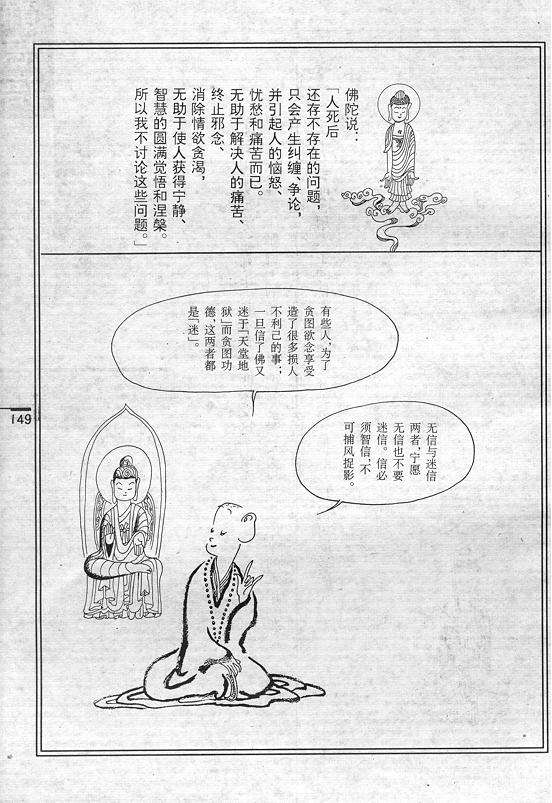 佛陀说：
「人死后
还存不存在的问题，
只会产生纠缠、争论，
并引起人的恼怒、
忧愁和痛苦而已。
无助于解决人的痛苦、
终止邪念、
消除情欲贪渴，
无助于使人获得宁静、
智慧的圆满觉悟和涅槃。
所以我不讨论这些问题。」
有些人，为了
贪图欲念享受
造了很多损人
不利己的事；
一旦信了佛又
迷于「天堂地
狱」而贪图功
德，这两者都
是「迷」。
无信与迷信
两者，宁愿
无信也不要
迷信。信必
须智信，不
可捕风捉影。
149